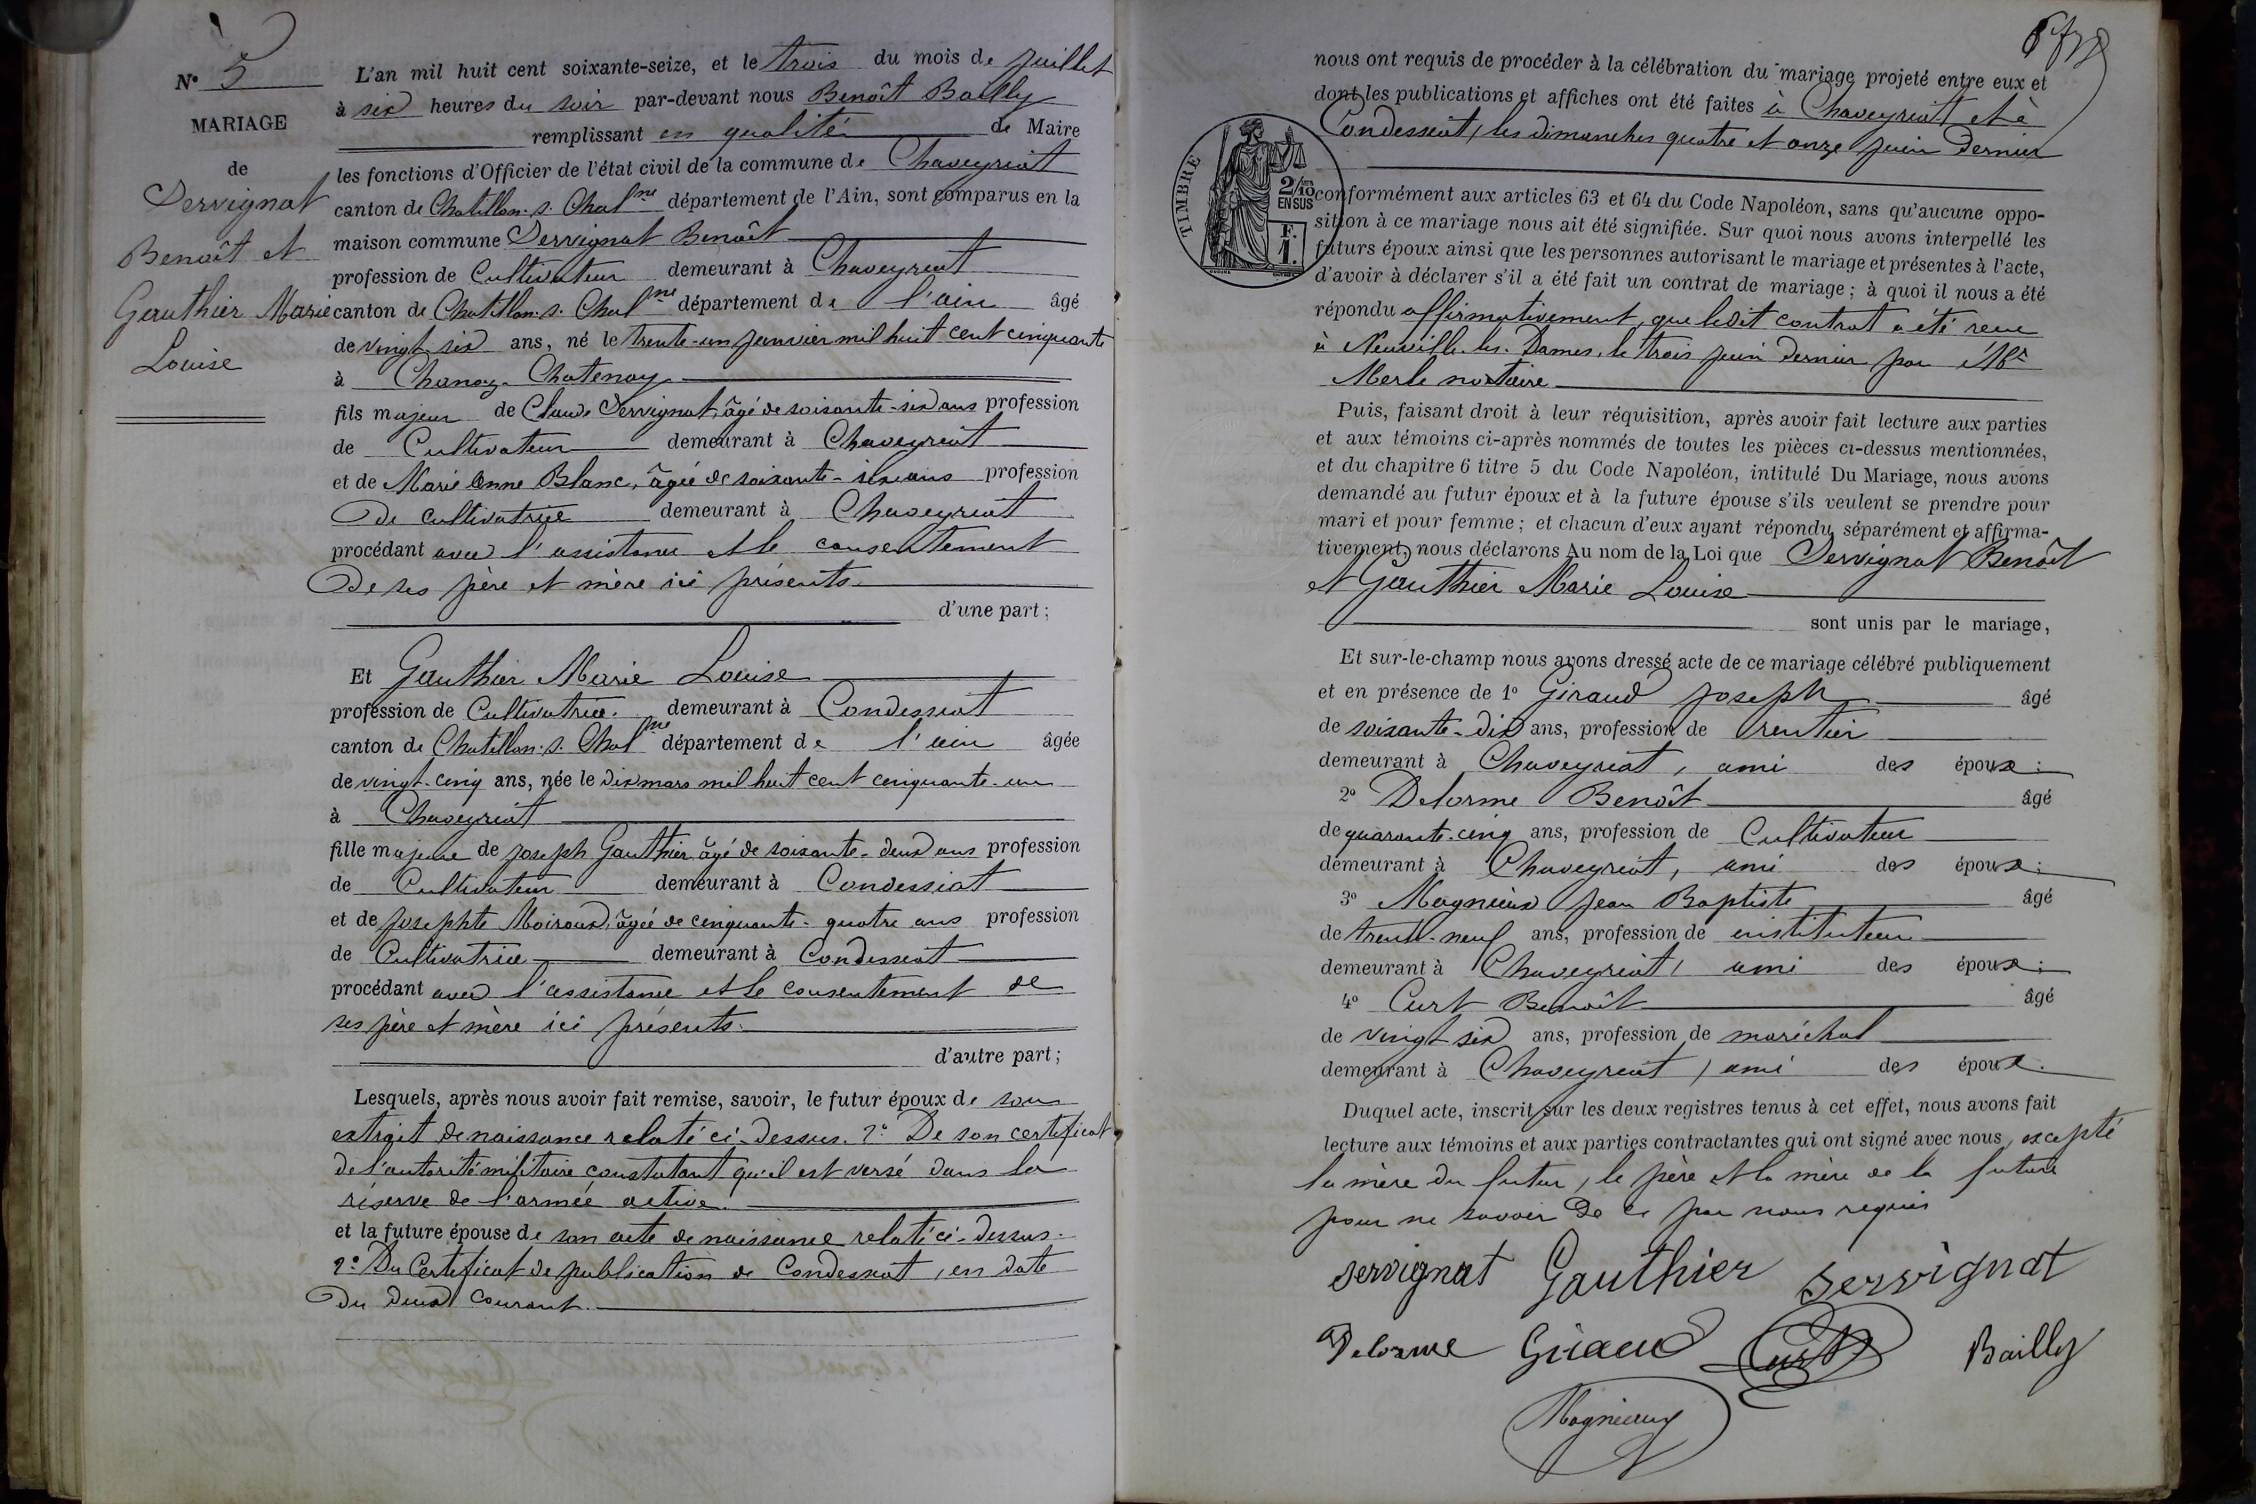 N° 5
MARIAGE
de
Servignat
Benoît et
Gauthier Marie
Louise
L'an mil huit cent soixante-seize, et le trois du mois de juillet
à six heures du soir par-devant nous Benoît Bailly
remplissant en qualité de Maire
les fonctions d'Officier de l'état civil de la commune de Chaveyriat
canton de Chatillon-s-Chal.ne département de l'Ain, sont comparus en la
maison commune Servignat Benoît
profession de Cultivateur demeurant à Chaveyriat
canton de Chatillon-s-Chal.ne département de l'ain âgé
de vingt-six ans, né le trente-un janvier mil huit cent cinquante
à Chanoz-Chatenay
fils majeur de Claude Servignat, âgé de soixante-six ans profession
de Cultivateur demeurant à Chaveyriat
et de Marie Anne Blanc, âgée de soixante-six ans profession
De cultivatrice demeurant à Chaveyriat
procédant avec l'assistance et le consentement
De ses père et mère ici présents.
d'une part ;
Et Gauthier Marie Louise
profession de Cultivatrice. demeurant à Condessiat
canton de Chatillon-s-Chal.ne département de l'ain âgée
de vingt-cinq ans, née le dix mars mil huit cent cinquante-un
à Chaveyriat
fille majeure de joseph Gauthier, âgé de soixante-deux ans profession
de Cultivateur demeurant à Condessiat
et de josephte Moiroud, âgée de cinquante-quatre ans profession
de Cultivatrice demeurant à Condessiat
procédant avec l'assistance et le consentement de
ses père et mère ici présents.
d'autre part ;
Lesquels, après nous avoir fait remise, savoir, le futur époux de son
extrait de naissance relaté ci-dessus. 2° De son certificat
de l'autorité militaire constatant qu'il est versé dans la
réserve de l'armée active.
et la future épouse de son acte de naissance relaté ci-dessus.
2° Du Certificat de publication de Condessiat, en date
Du deux courant.
nous ont requis de procéder à la célébration du mariage projeté entre eux et
dont les publications et affiches ont été faites à Chaveyriat et à
Condessiat, les dimanches quatre et onze juin dernier
TIMBRE
2/10 EN SUS
F. 1.
conformément aux articles 63 et 64 du Code Napoléon, sans qu'aucune oppo-
sition à ce mariage nous ait été signifiée. Sur quoi nous avons interpellé les
futurs époux ainsi que les personnes autorisant le mariage et présentes à l'acte,
d'avoir à déclarer s'il a été fait un contrat de mariage ; à quoi il nous a été
répondu affirmativement, que ledit contrat a été reçu
à Neuville-les-Dames, le trois juin dernier par Me
Merle notaire
Puis, faisant droit à leur réquisition, après avoir fait lecture aux parties
et aux témoins ci-après nommés de toutes les pièces ci-dessus mentionnées,
et du chapitre 6 titre 5 du Code Napoléon, intitulé Du Mariage, nous avons
demandé au futur époux et à la future épouse s'ils veulent se prendre pour
mari et pour femme ; et chacun d'eux ayant répondu séparément et affirma-
tivement, nous déclarons Au nom de la Loi que Servignat Benoît
et Gauthier Marie Louise
sont unis par le mariage,
Et sur-le-champ nous avons dressé acte de ce mariage célébré publiquement
et en présence de 1° Giraud joseph âgé
de soixante-dix ans, profession de rentier
demeurant à Chaveyriat, ami des époux ;
2° Delorme Benoît âgé
de quarante-cinq ans, profession de Cultivateur
demeurant à Chaveyriat, ami des époux ;
3° Magnieux jean Baptiste âgé
de trente-neuf ans, profession de instituteur
demeurant à Chaveyriat, ami des époux ;
4° Curt Benoît âgé
de vingt six ans, profession de maréchal
demeurant à Chaveyriat, ami des époux.
Duquel acte, inscrit sur les deux registres tenus à cet effet, nous avons fait
lecture aux témoins et aux parties contractantes qui ont signé avec nous, excepté
la mère du futur, le père et la mère de la future
pour ne savoir De ce par nous requis
servignat Gauthier servignat
Delorme Giraud Curt Bailly
Magnieux